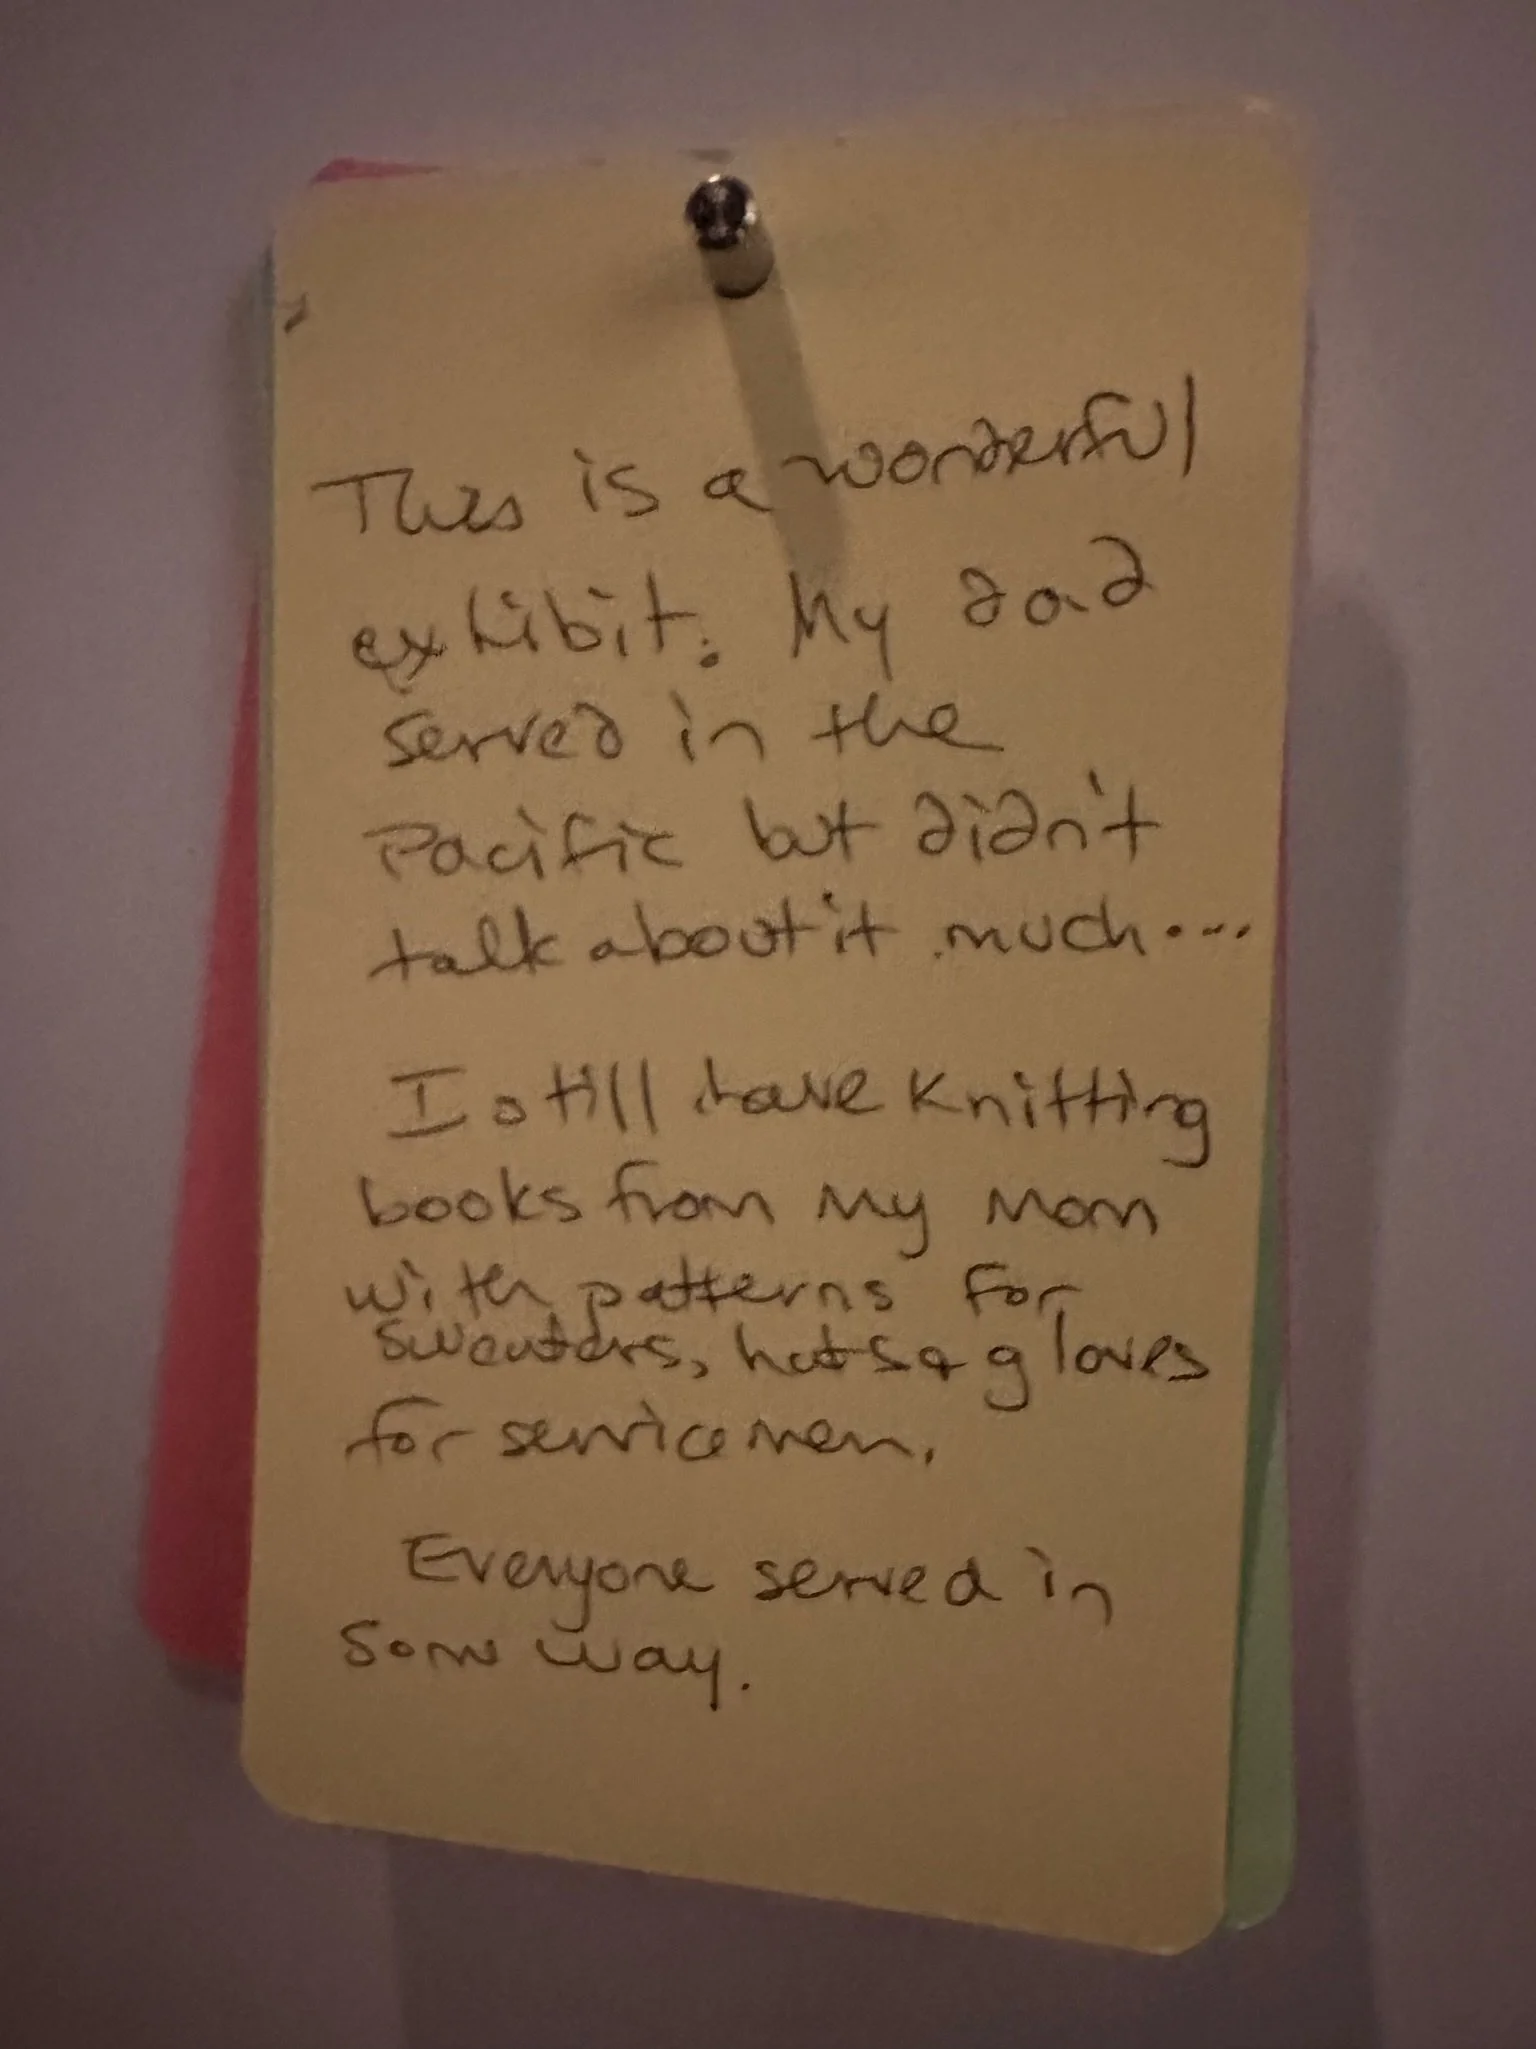 This is a wonderful
exhibit. My dad
served in the
Pacific but didn't
talk about it much...
I still have knitting
books from my mom
with patterns for
sweaters, hats & gloves
for servicemen.
Everyone served in
some way.